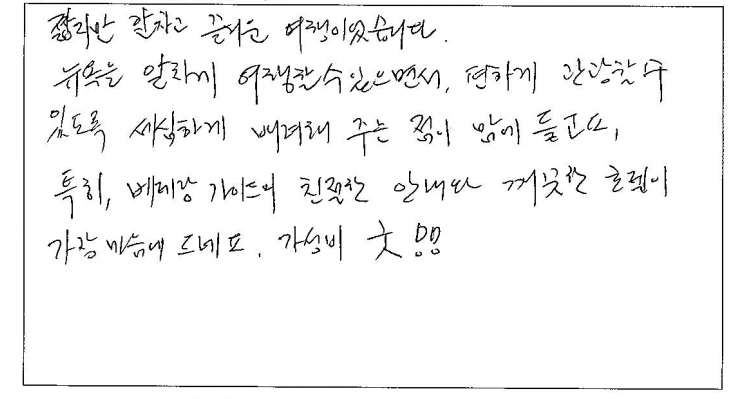 짧지만 알차고 즐거운 여행이었습니다.
뉴욕을 알차게 여행할 수 있으면서, 편하게 관광할 수
있도록 세심하게 배려해 주는 점이 맘에 들고요,
특히, 베테랑 가이드의 친절한 안내와 깨끗한 호텔이
가장 마음에 드네요. 가성비 굿